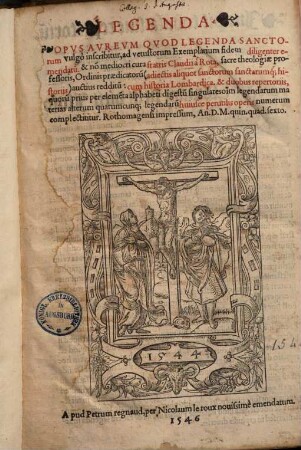 Colleg. S. J. Augustae
LEGENDA
OPVS AVREVM QVOD LEGENDA SANCTO-
rum vulgo inscribitur, ad vetustiorum Exemplarium fidem diligenter e-
mendatū, & nō mediocri cura fratris Claudij a Rota, sacre theologiæ pro-
fessoris, Ordinis prædicatorū, adiectis aliquot sanctorum sanctarumq; hi-
storijs, sanctius redditū: cum historia Lombardica, & duobus repertorijs,
quorū prius per elementa alphabeti digestū singulares omniū legendarum ma
terias, alterum quotumcunq; legendarū huiusce perutilis operis numerum
complectitur. Rothomagensi impressum, An. D. M. quin. quad. sexto.
1544
Apud Petrum regnaud, per Nicolaum le roux nouissimè emendatum.
1546